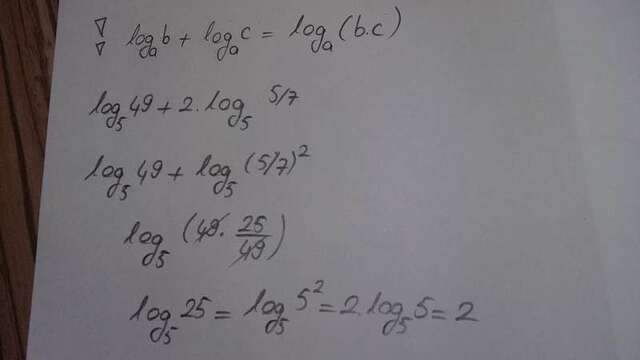 ∇∇ logₐb + logₐc = logₐ(b.c)
log₅49 + 2.log₅ 5/7
log₅49 + log₅(5/7)²
log₅(49. 25/49)
log₅25 = log₅5² = 2.log₅5 = 2